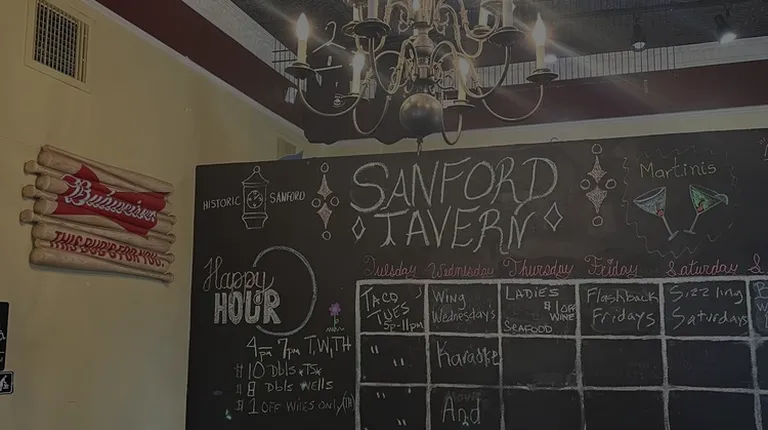 Budweiser
THIS BUD'S FOR YOU.
HISTORIC SANFORD
SANFORD
TAVERN
Martinis
Happy
HOUR
4pm 7pm T, W, TH
$10 Dbls
$8 Dbls wells
$1 OFF WINES ONLY
Tuesday Wednesday Thursday Friday Saturday S
TACO
TUES
5p-11pm
Wing
Wednesdays
LADIES
$1 OFF
WINE
SEAFOOD
Flashback
Fridays
Sizzling
Saturdays
" "
Karaoke
" "
And